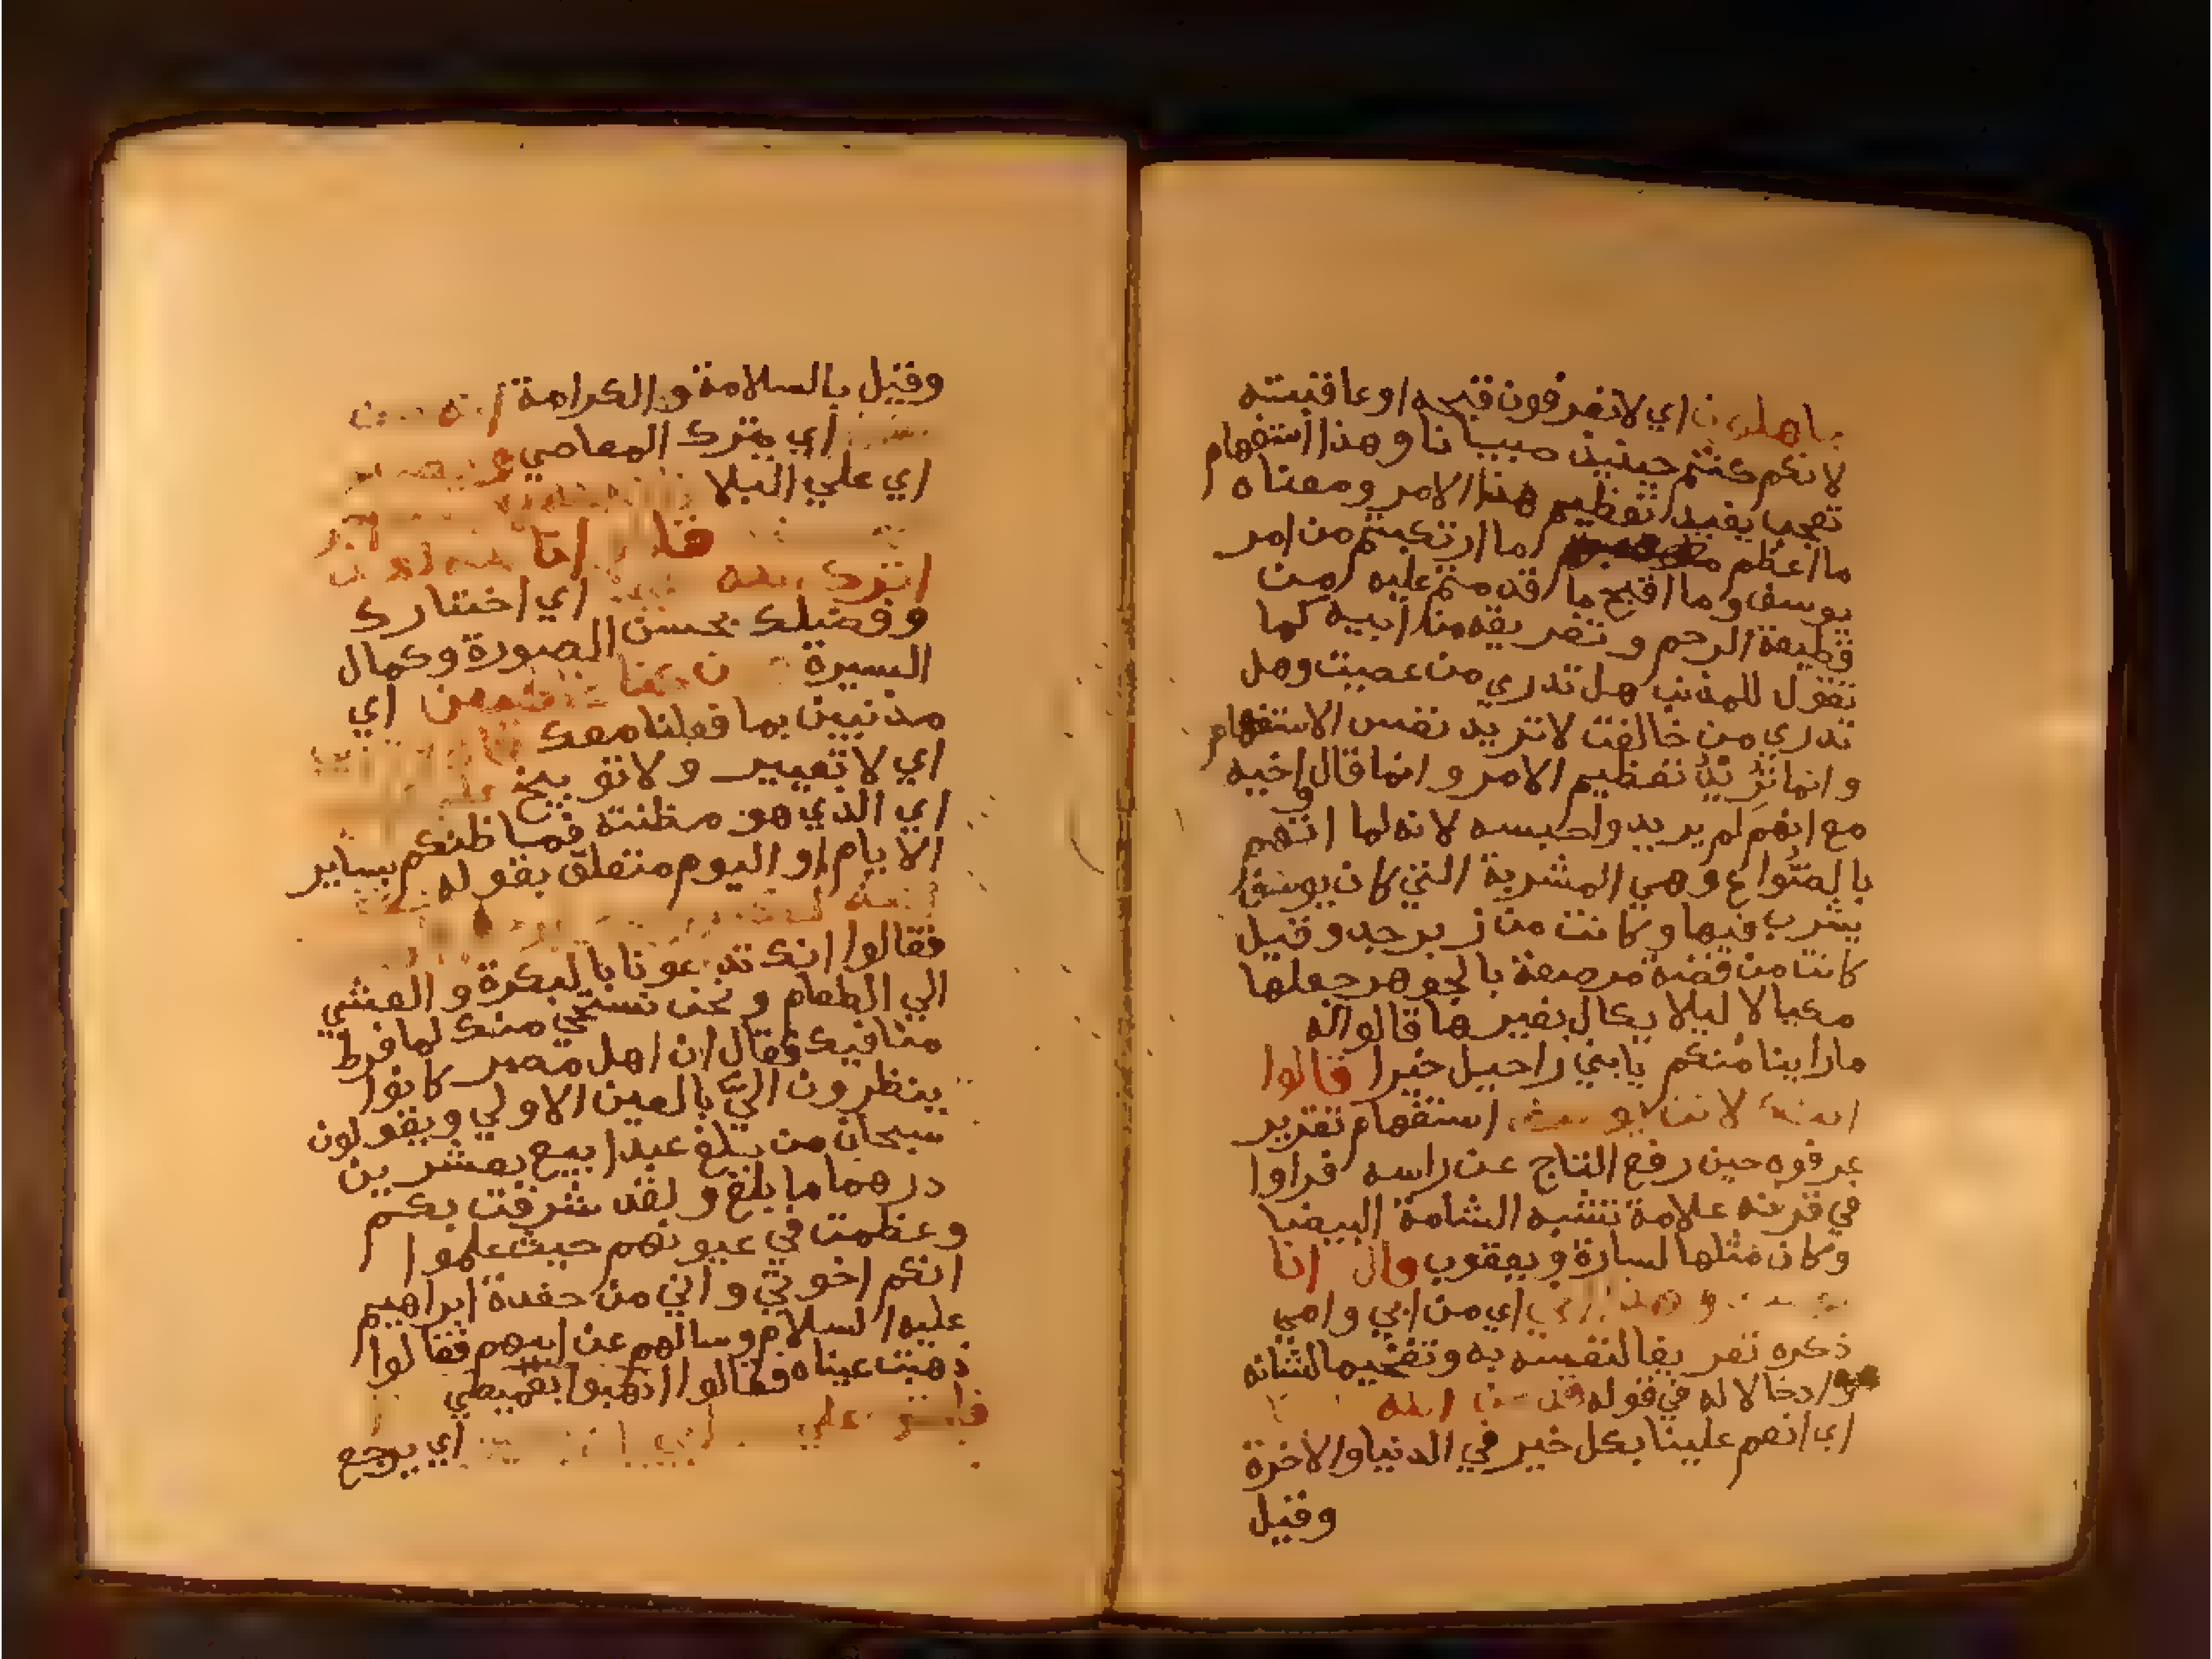 جاهلون اي لا تعرفون قبحه او عاقبته
لانكم كنتم حينيذ صبيانا وهذا استفهام
تعجب يفيد تعظيم هذا الامر ومعناه
ما اعظم ما ارتكبتم من امر
يوسف وما اقبح ما قدمتم عليه من
قطيعة الرحم وتفريقه من ابيه كما
تقول للمذنب هل تدري من عصيت وهل
تدري من خالفت لا تريد نفس الاستفهام
وانما تريد تفظيم الامر وانما قال اخيه
مع انهم لم يريدوا حبسه لانه لما اتهم
بالصُّواع وهي المشربة التي كان يوسف
يشرب فيها وكانت من زبرجد وقيل
كانت من فضة مرصعة بالجوهر جعلها
مكيالا ليلا يكال بغيرها قالوا له
ما راينا منكم يا بني راحيل خيرا قالوا
لانت يوسف استفهام تقرير
عرفوه حين رفع التاج عن راسه فراوا
في قرنه علامة تشبه الشامة البيضا
وكان مثلها لسارة ويعقوب قال انا
وهذا اخي اي من ابي وامي
ذكره تعريفا لنفسه به وتفخيما لشانه
وادخالا له في قوله قد من الله
اي انعم علينا بكل خير في الدنيا والاخرة
وقيل
وقيل بالسلامة والكرامة انه من
اي يترك المعاصي ويصبر
اي علي البلا
قالوا
اثرك الله اي اختارك
وفضلك بحسن الصورة وكمال
السيرة وان كنا لخاطيين اي
مذنبين بما فعلنا معك قال
اي لا تعيير ولا توبيخ عليكم
اي الذي هو مظنته فما ظنكم بساير
الايام او اليوم متعلق بقوله
فقالوا انك تدعونا بالبكرة والعشي
الي الطعام ونحن نستحي منك لما فرط
منا فيك فقال ان اهل مصر كانوا
ينظرون اليَّ بالعين الاولي ويقولون
سبحان من بلغ عبدا بيع بعشرين
درهما ما بلغ ولقد شرفت بكم
وعظمت في عيونهم حيث علموا
انكم اخوتي واني من حفدة ابراهيم
عليه السلام وسالهم عن ابيهم فقالوا
ذهبت عيناه فقالوا اذهبوا بقميصي
علي اي يرجع